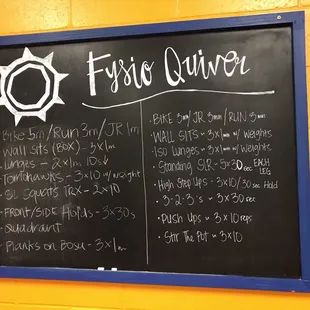 Fysio Quiver
Bike 5m/Run 3m/JR 1m
Wall Sits (Box) - 3x1m
Lunges - 2x1m 10s↓
Tomahawks - 3x10 w/weight
SL Squats TRX - 2x10
Front/Side Holds - 3x30s
Squadrant
Planks on Bosu - 3x1m
• Bike 3m/JR 3m/Run 3m
• Wall Sits - 3x1m w/ Weights
• Iso Lunges - 3x1m w/ Weights
• Standing SLR - 5x30sec Each Leg
• High Step Ups - 3x10/30sec Hold
• 3-2-3's - 3x30sec
• Push Ups - 3x10reps
• Stir The Pot - 3x10